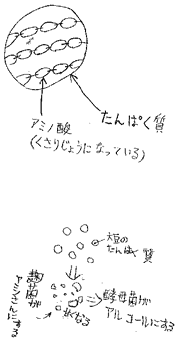 たんぱく質
アミノ酸
(くさりじょうになっている)
大豆の
たんぱく質
麹菌が
アミノさんにする
状になる
酵母菌が
アルコールにする